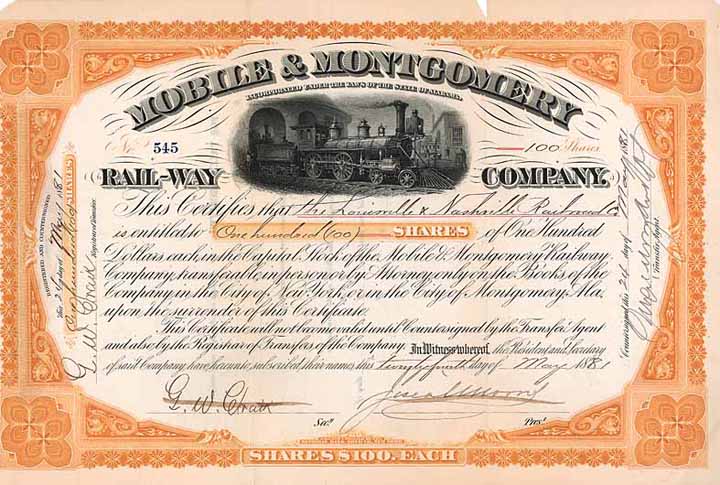 MOBILE & MONTGOMERY
INCORPORATED UNDER THE LAWS OF THE STATE OF ALABAMA.
No. 545
100 Shares
RAIL-WAY COMPANY.
This Certifies that the Louisville & Nashville Railroad Co
is entitled to One hundred (100) SHARES of One Hundred
Dollars each in the Capital Stock of the Mobile & Montgomery Railway
Company, transferable in person or by Attorney only on the Books of the
Company in the City of New York, or in the City of Montgomery Ala.
upon the surrender of this Certificate.
This Certificate will not become valid until Countersigned by the Transfer Agent
and also by the Registrar of Transfers of the Company. In Witness whereof, the President and Secretary
of said Company have hereunto subscribed their names this twenty fourth day of May 1881
G. W. Craik
Secy.
Prest.
SHARES $100. EACH
REGISTERED AND COUNTERSIGNED
This 24 day of May 1881
One hundred (100) SHARES
G. W. Craik
Registrar of Transfers
Countersigned this 24 day of May 1881
Transfer Agent.